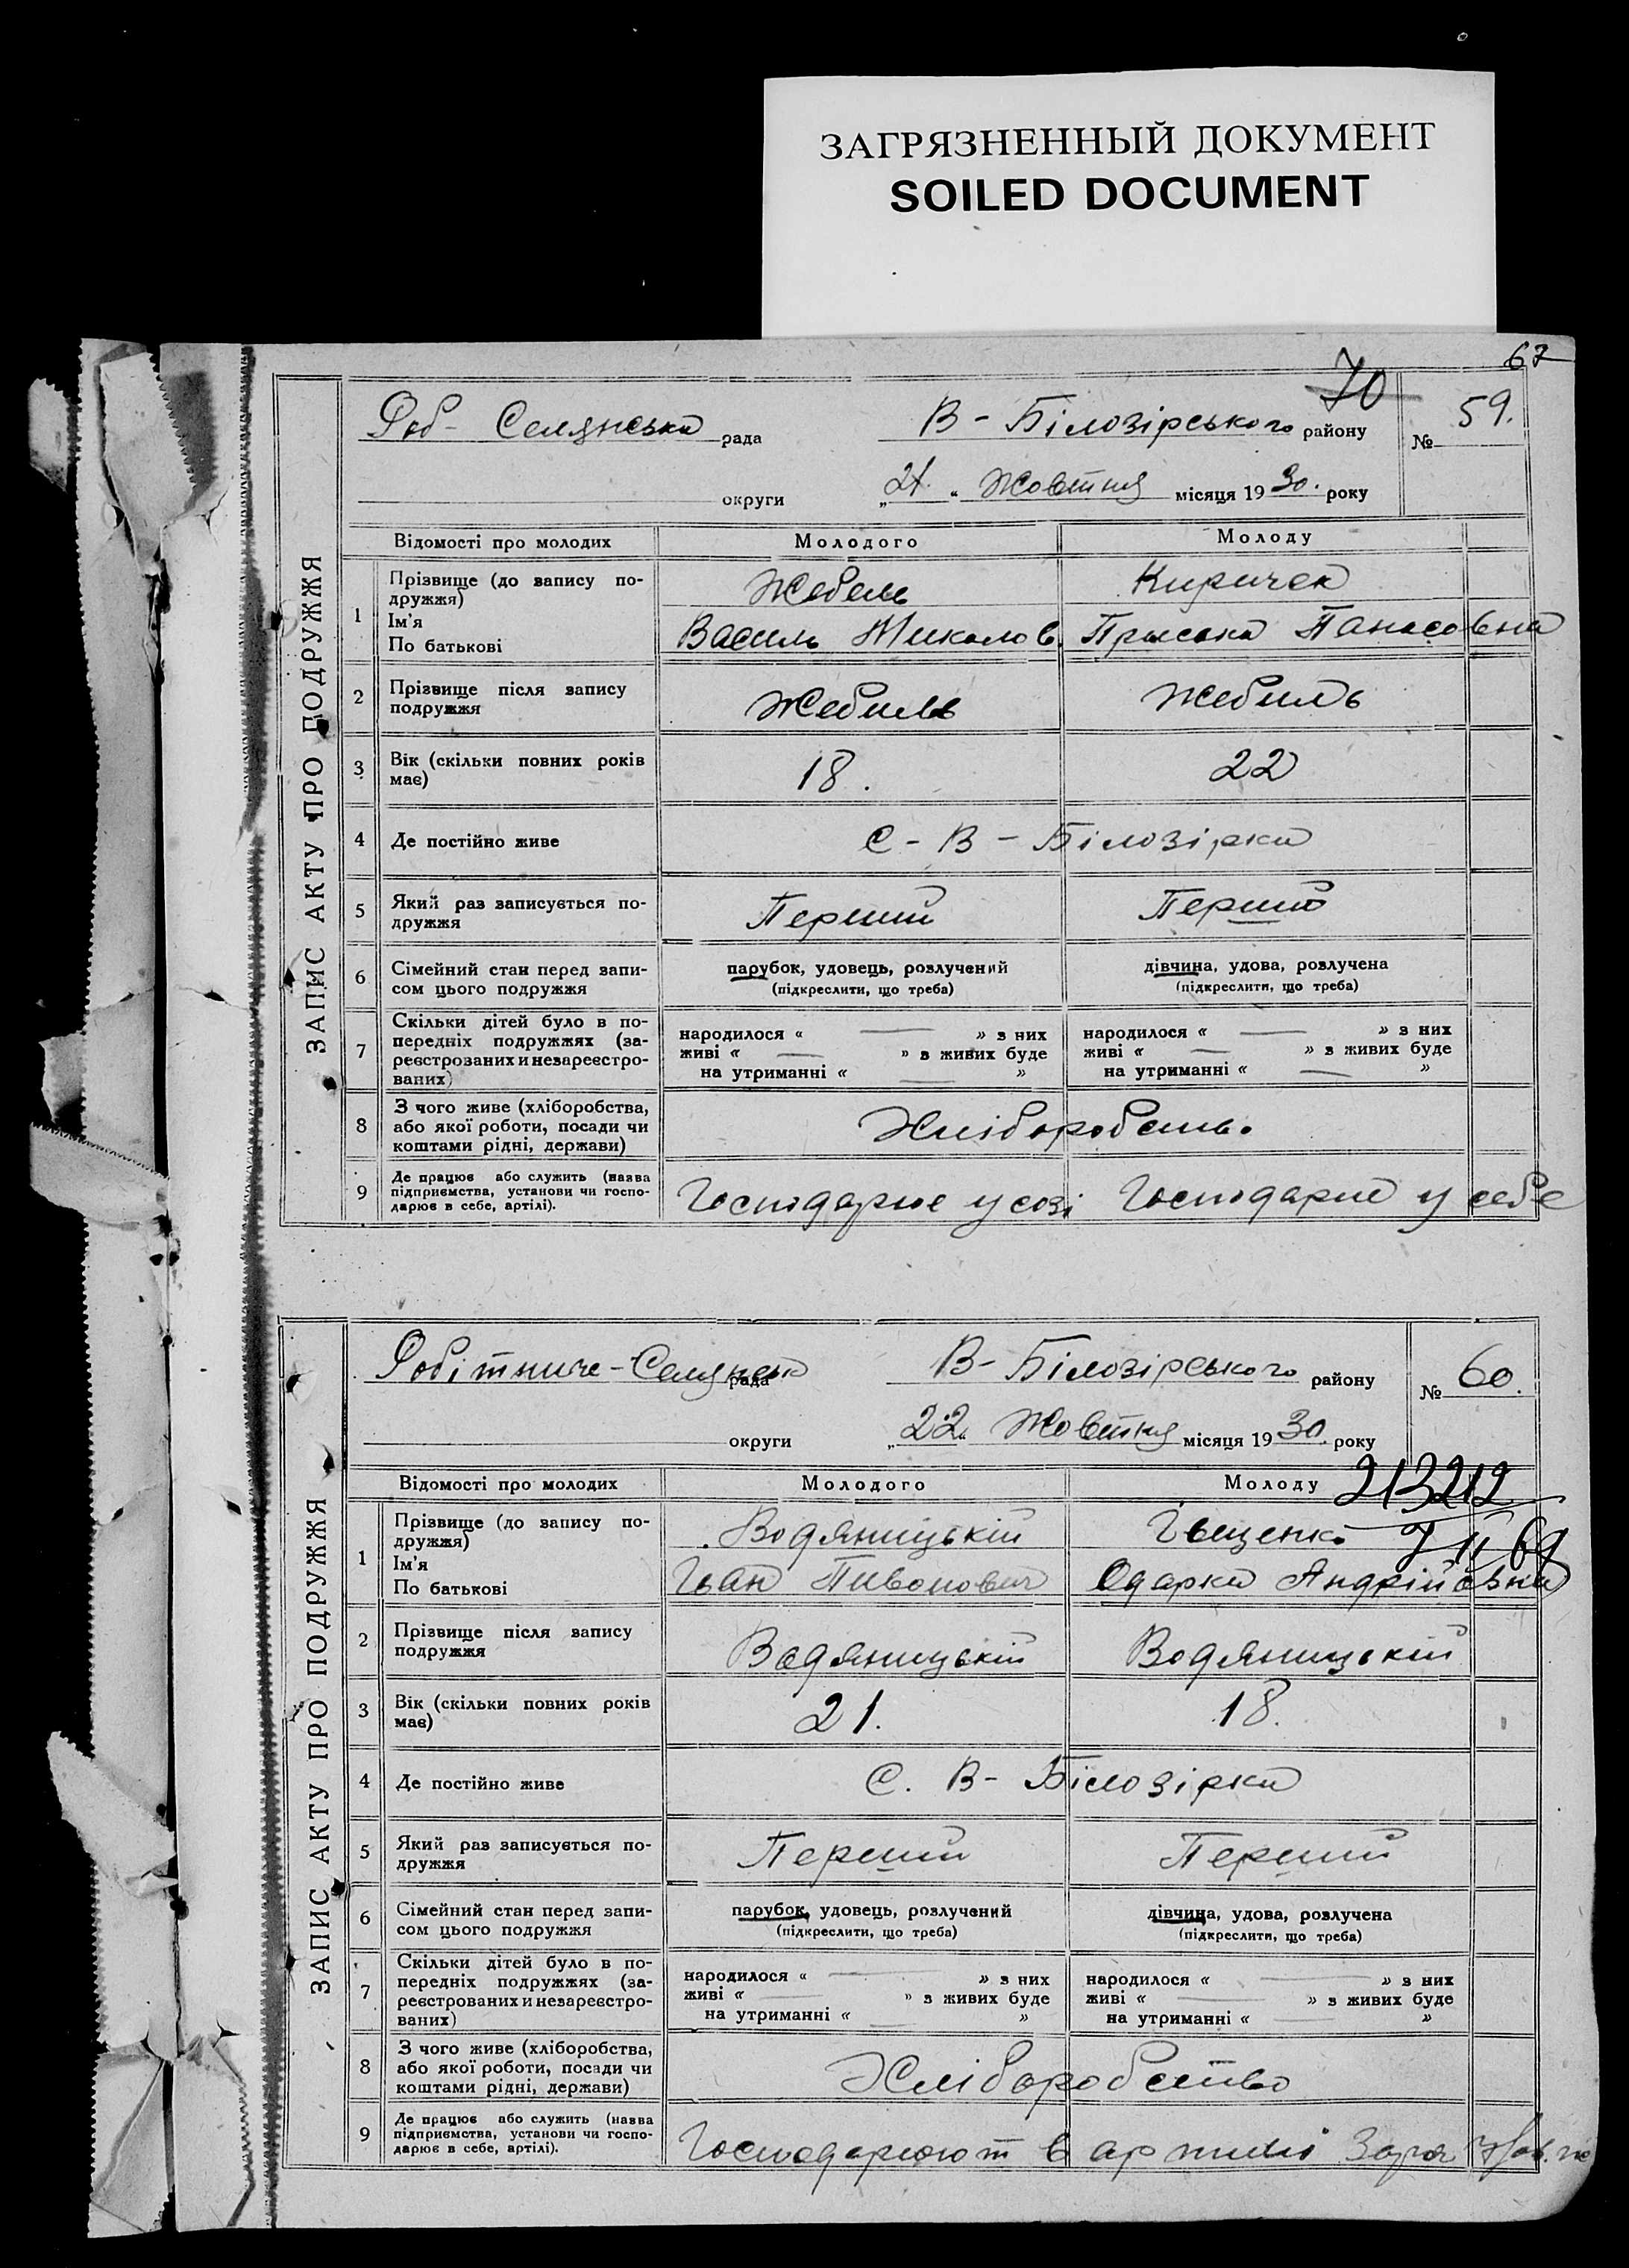 ЗАГРЯЗНЕННЫЙ ДОКУМЕНТ
SOILED DOCUMENT
67
70
ЗАПИС АКТУ ПРО ПОДРУЖЖЯ
Роб- Селянська рада В - Білозірського району № 59.
округи „21." Жовтня місяця 1930. року
Відомості про молодих Молодого Молоду
1 Прізвище (до запису по-
дружжя) Жебель Киричек
Ім'я
По батькові Василь Миколов. Прыська Панасовна
2 Прізвище після запису
подружжя Жебиль Жебиль
3 Вік (скільки повних років
має) 18. 22
4 Де постійно живе С - В - Білозірка
5 Який раз записується по-
дружжя Перший Перший
6 Сімейний стан перед запи-
сом цього подружжя
парубок, удовець, розлучений дівчина, удова, розлучена
(підкреслити, що треба) (підкреслити, що треба)
7 Скільки дітей було в по-
передніх подружжях (за-
реєстрованих и незареєстро-
ваних)
народилося « — » з них народилося « — » з них
живі « — » з живих буде живі « — » з живих буде
на утриманні « — » на утриманні « — »
8 З чого живе (хліборобства,
або якої роботи, посади чи
коштами рідні, держави) Хліборобств.
9 Де працює або служить (назва
підприємства, установи чи госпо-
дарює в себе, артілі). Господарює у созі Господарює у себе
ЗАПИС АКТУ ПРО ПОДРУЖЖЯ
Робітниче-Селянська рада В- Білозірського району № 60.
округи „22" Жовтня місяця 1930. року
213212
Відомості про молодих Молодого Молоду
7 II 69
1 Прізвище (до запису по-
дружжя) Водяницькій Іващенко
Ім'я
По батькові Іван Пивонович Одарка Андрійовна
2 Прізвище після запису
подружжя Водяницькій Водяницькій
3 Вік (скільки повних років
має) 21. 18.
4 Де постійно живе С. В- Білозірка
5 Який раз записується по-
дружжя Перший Перший
6 Сімейний стан перед запи-
сом цього подружжя
парубок, удовець, розлучений дівчина, удова, розлучена
(підкреслити, що треба) (підкреслити, що треба)
7 Скільки дітей було в по-
передніх подружжях (за-
реєстрованих и незареєстро-
ваних)
народилося « — » з них народилося « — » з них
живі « — » з живих буде живі « — » з живих буде
на утриманні « — » на утриманні « — »
8 З чого живе (хліборобства,
або якої роботи, посади чи
коштами рідні, держави) Хліборобство
9 Де працює або служить (назва
підприємства, установи чи госпо-
дарює в себе, артілі). Господарюют в артилі Заря